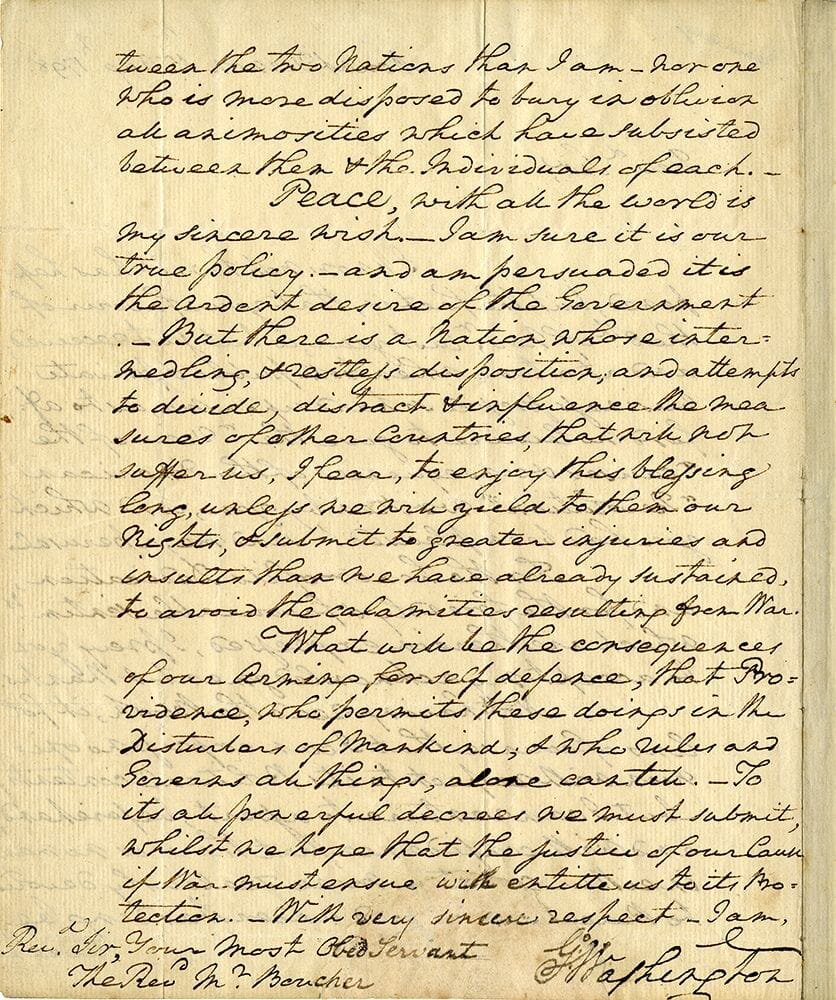 tween the two Nations than I am – nor one
who is more disposed to bury in oblivion
all animosities which have subsisted
between them & the Individuals of each. –
Peace, with all the world is
my sincere wish. – I am sure it is our
true policy. – and am persuaded it is
the ardent desire of the Government
. – But there is a Nation whose inter=
medling, & restless disposition; and attempts
to divide, distract & influence the mea
sures of other Countries, that will not
suffer us, I fear, to enjoy this blessing
long, unless we will yield to them our
Rights, & submit to greater injuries and
insults than we have already sustained,
to avoid the calamities resulting from War.
What will be the consequences
of our Arming for self defence, that Pro=
vidence, who permits these doings in the
Disturbers of Mankind; & who rules and
Governs all things, alone can tell. – To
its all powerful decrees we must submit,
whilst we hope that the justice of our Cause
if War must ensue will entitle us to its Pro=
tection. – With very sincere respect – I am,
Revd. Sir, Your Most Obed Servant
Go: Washington
The Revd Mr. Boucher